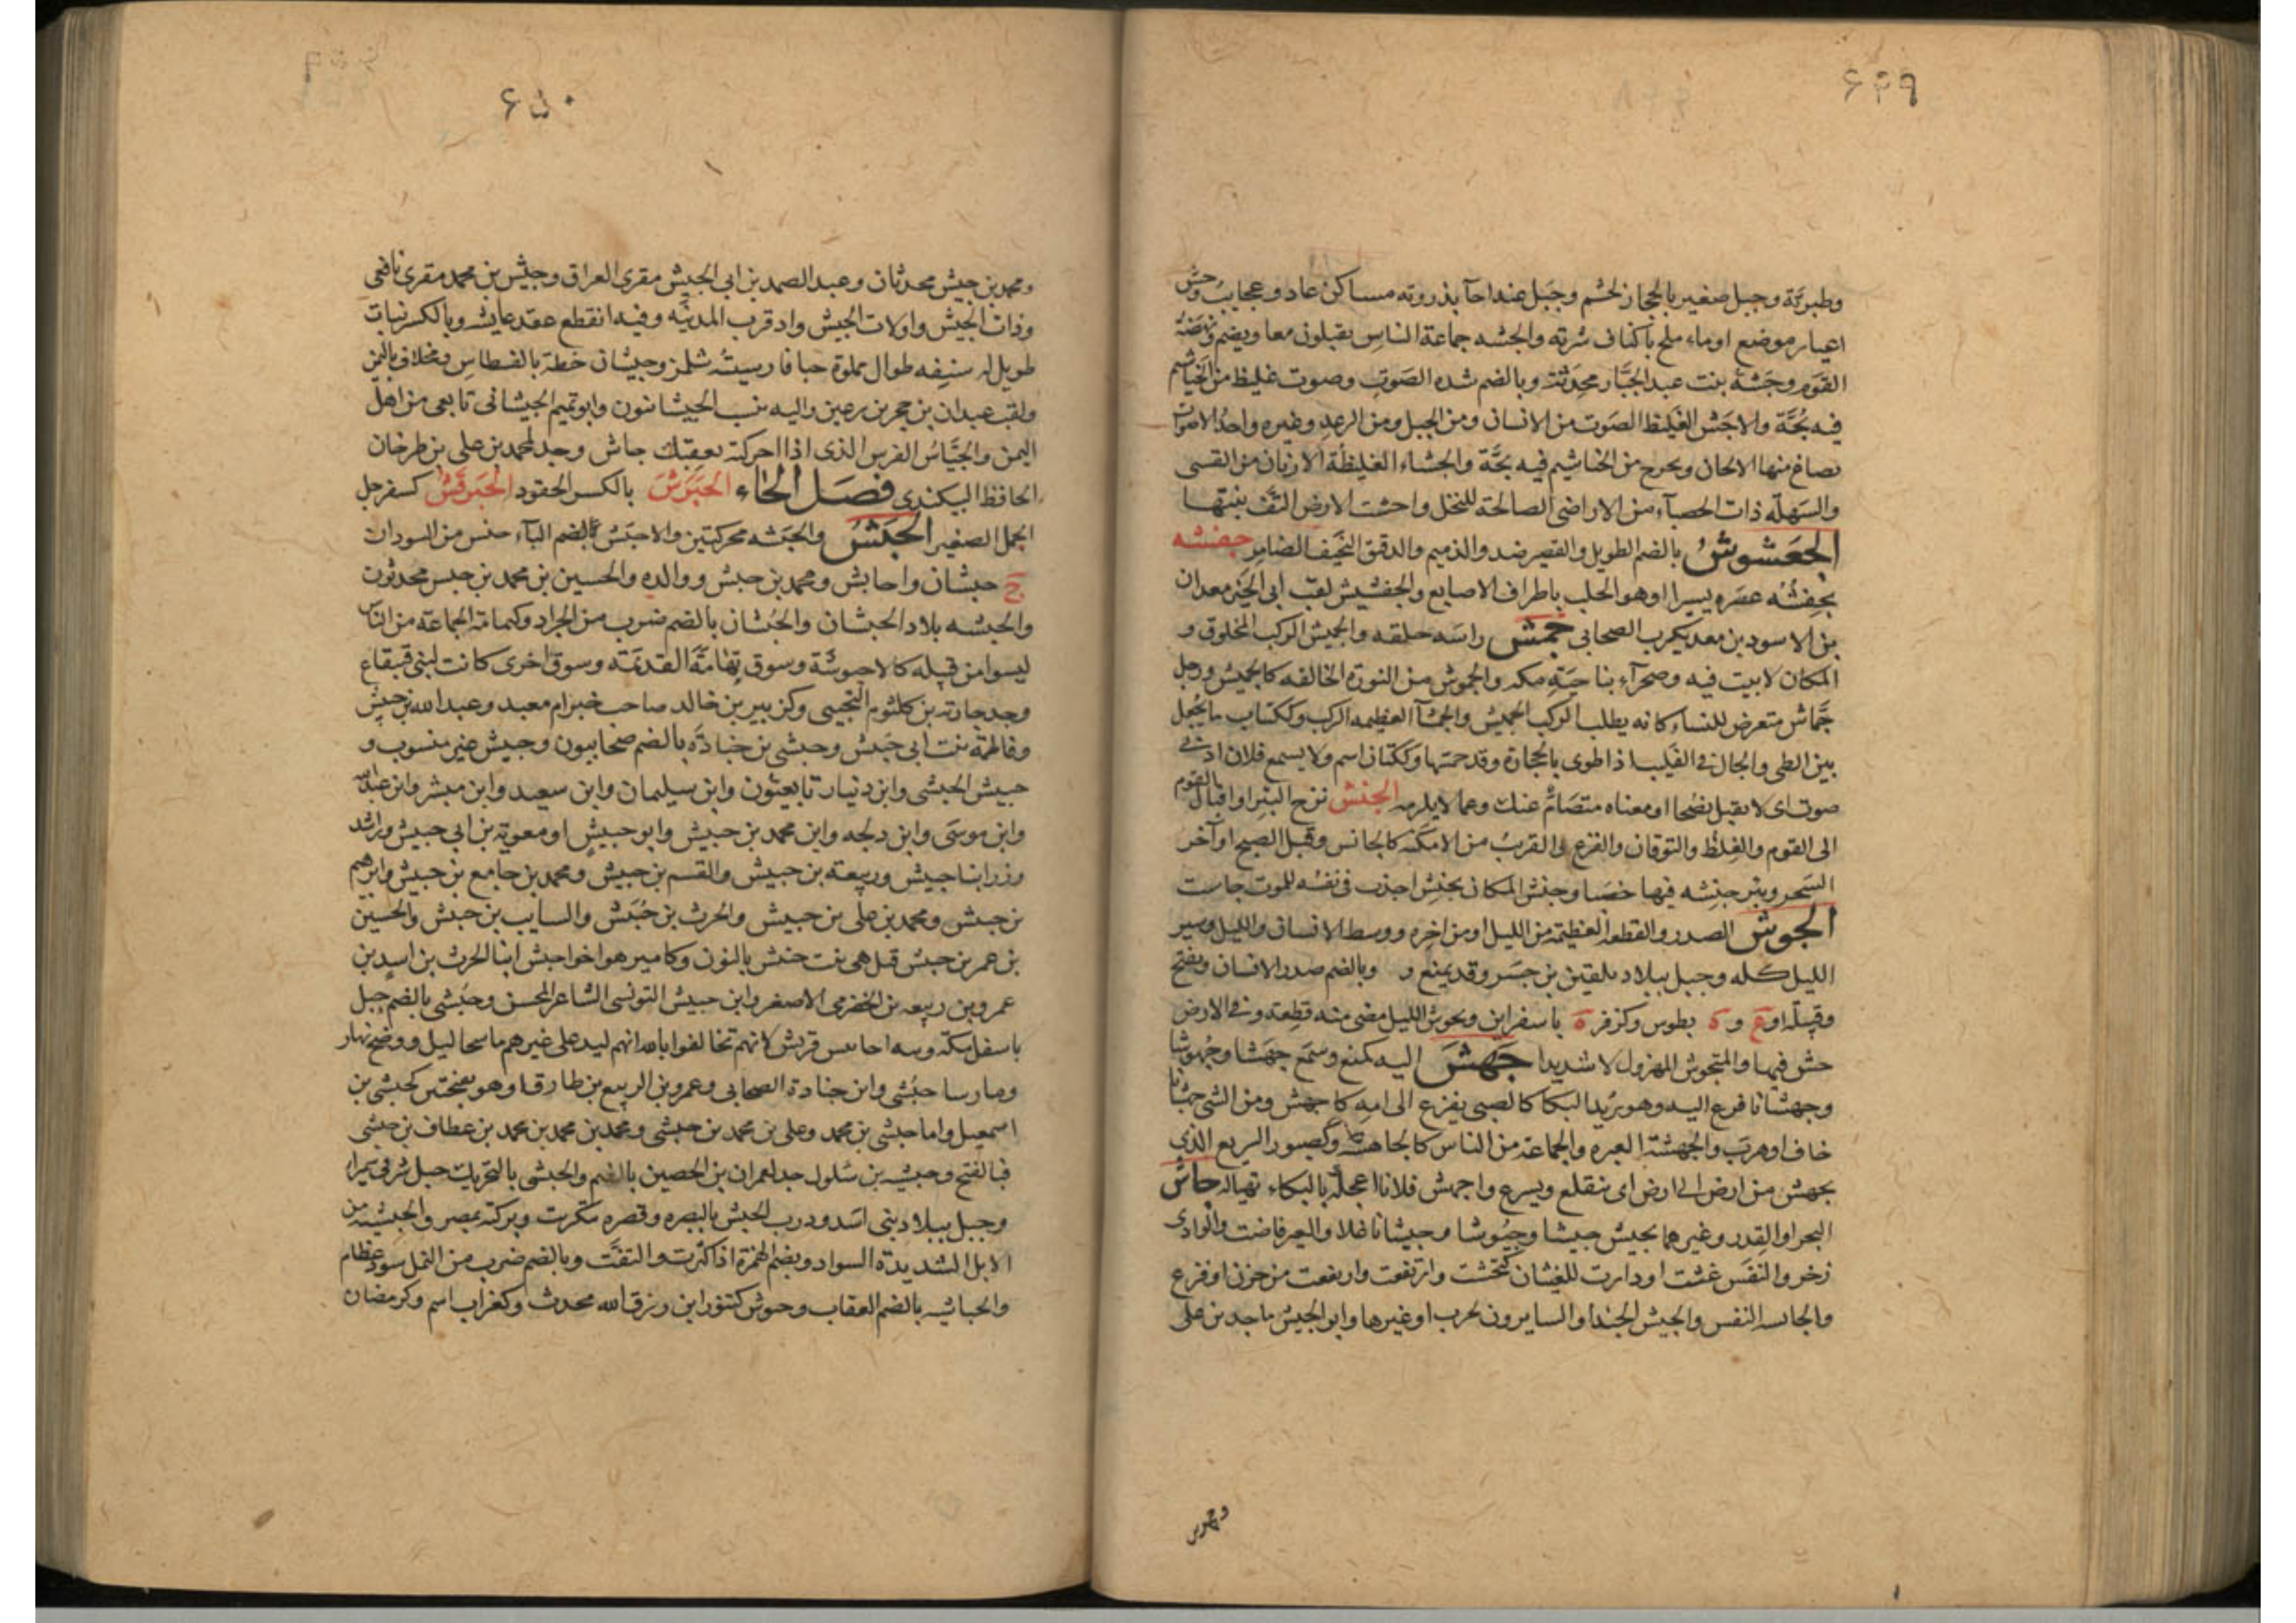 ۶۴۹
وطبرية وجبل صغير بالحجاز لجشم وجبل عند اجآ بذروته مساكن عاد وعجايب وجش
اعيار موضع اوماء ملح باكناف شرته والجشه جماعة الناس يقبلون معا ويضم ونهضة
القوم وجشة بنت عبد الجبار محدثة وبالضم شده الصوت وصوت غليظ من الخياشيم
فيه بحة والاجش الغليظ الصوت من الانسان ومن الجبل ومن الرعد وغيره واحد الاصوات
تصاغ منها الالحان ويخرج من الخياشيم فيه بحة والجشاء الغليظة الارنان من القسى
والسهلة ذات الحصباء من الاراضى الصالحة للنخل واجشت الارض التف نبتها
الجعشوش بالضم الطويل والقصير ضد والذميم والدقيق النحيف الضامر جفشه
يجفشه عصره يسيرا اوهو الحلب باطراف الاصابع والجفشيش لقب ابى الخير معدان
بن الاسود بن معديكرب الصحابى جمش راسه حلقه والجميش الركب المحلوق و
المكان لا بيت فيه وصحرآء بناحية مكه والجموش من النورة الحالقه كالجميش ورجل
جماش متعرض للنساء كانه يطلب الركب الجميش والجمشآ العظيمه الركب وككتاب ما يجعل
بين الطى والجال فى القليب اذا طوى بالحجارة وقد جمشها وككتان اسم ولا يسمع فلان ادنى
صوت اى لا يقبل نصحا او معناه متصام عنك وعما لا يلزمه الجنش نزح البئر او اقبال القوم
الى القوم والغلظ والتوقان والفزع والقريب من الامكنة كالجانس وقبل الصبح او آخر
السحر وبئر جنشه فيها حصا وجنش المكان يجنش اجدب فى نفسه للموت جاست
الجوش الصدر والقطعه العظيمة من الليل اومن اخره ووسط الانسان والليل وسير
الليل كله وجبل ببلاد بلقين بن جسر وقد يمنع و وبالضم صدر الانسان ويفتح
وقبيلة اوع و ة بطوس وكزفر ة باسفراين وتجوش الليل مضى منه قطعة وفى الارض
حش فيها والمتجوش المهزول لا شديدا جهش اليه كمنع وسمع جهشا وجهوشا
وجهشانا فزع اليه وهو يريد البكا كالصبى يفزع الى امه كاجهش ومن الشى جهشانا
خاف او هرب والجهشة العبره والجماعة من الناس كالجاهشة وكصبور السريع الذى
يجهش من ارض الى ارض اى يتقلع ويسرع واجهش فلانا اعجله بالبكاء تهياله جاش
البحر او القدر وغيرهما يجيش جيشا وجيوشا وجيشانا غلا والعين فاضت والوادى
زخر والنفس غشت او دارت للغشيان كتجشت وارتفعت وارتفعت من حزن او فزع
والجائشه النفس والجيش الجند او السايرون لحرب او غيرها وابو الجيش ماجد بن على
۶۵۰
ومحمد بن جيش محدثان وعبد الصمد بن ابى الجيش مقرى العراق وجيش بن محمد مقرى نافعى
وذات الجيش واولات الجيش واد قرب المدينه وفيه انقطع عقد عايشه وبالكسر نبات
طويل له سنفه طوال مملوة حبا فارسيته شلمز وجيشان خطة بالفسطاس ومخلاف باليمن
ولقب عبدان بن حجر بن رعين واليه نسب الجيشانيون وابو تميم الجيشانى تابعى من اهل
اليمن والجياش الفرس الذى اذا حركته بعقبك جاش وجد لمحمد بن على بن طرخان
الحافظ البيكندى فصل الحاء الحبرش بالكسر الحقود الحبرقش كسفرجل
الجمل الصغير الحبش والحبشه محركتين والاحبش بالضم الباء جنس من السودان
ج حبشان واحابش ومحمد بن حبش ووالده والحسين بن محمد بن حبش محدثون
والحبشه بلاد الحبشان والحبشان بالضم ضرب من الجراد وكمامة الجماعة من الناس
ليسوا من قبيله كالاحبوشة وسوق تهامة القديمة وسوق اخرى كانت لبنى قينقاع
وجد حارثه بن كلثوم التجيبى وكزبير بن خالد صاحب خبر ام معبد وعبد الله بن حبيش
وفاطمة بنت ابى حبيش وحبشى بن جنادة بالضم صحابيون وحبيش غير منسوب و
حبيش الحبشى وابن دينار تابعيون وابن سليمان وابن سعيد وابن مبشر وابن عبد الله
وابن موسى وابن دلجه وابن محمد بن حبيش وابو حبيش او معوية بن ابى حبيش وراشد
وزر ابنا حبيش وربيعة بن حبيش والقسم بن حبيش ومحمد بن جامع بن حبيش وابرهيم
بن حبيش ومحمد بن على بن حبيش والحرث بن حبيش والسايب بن حبش والحسين
بن عمر بن حبش قيل هى بنت حنش بالنون وكامير هو اخو احبش ابنا الحرث بن اسد بن
عمرو بن ربيعه بن الحضرمى الاصغر وابن حبيش التونسى الشاعر المحسن وحبشى بالضم جبل
باسفل مكة ومنه احابيش قريش لانهم تحالفوا بالله انهم ليد على غيرهم ما سجا ليل ووضح نهار
وما رسا حبشى وابن جنادة الصحابى وعمرو بن الربيع بن طارق او هو بفتحتين كحبشى بن
اسمعيل واما حبشى بن محمد وعلى بن محمد بن حبشى ومحمد بن محمد بن محمد بن عطاف بن حبشى
فبالفتح وحبشيه بن سلول جد لعمران بن الحصين بالضم والحبشى بالتحريك جبل شرقى سميرا
وجبل ببلاد بنى اسد ودرب الحبش بالبصره وقصره بتكريت وبركته بمصر والحبشيه من
الابل الشديدة السواد وبضم الهمزة اذا كثرت والتفت وبالضم ضرب من النمل سود عظام
والحباشيه بالضم العقاب وحبوش كتنور ابن رزق الله محدث وكغراب اسم وكرمضان